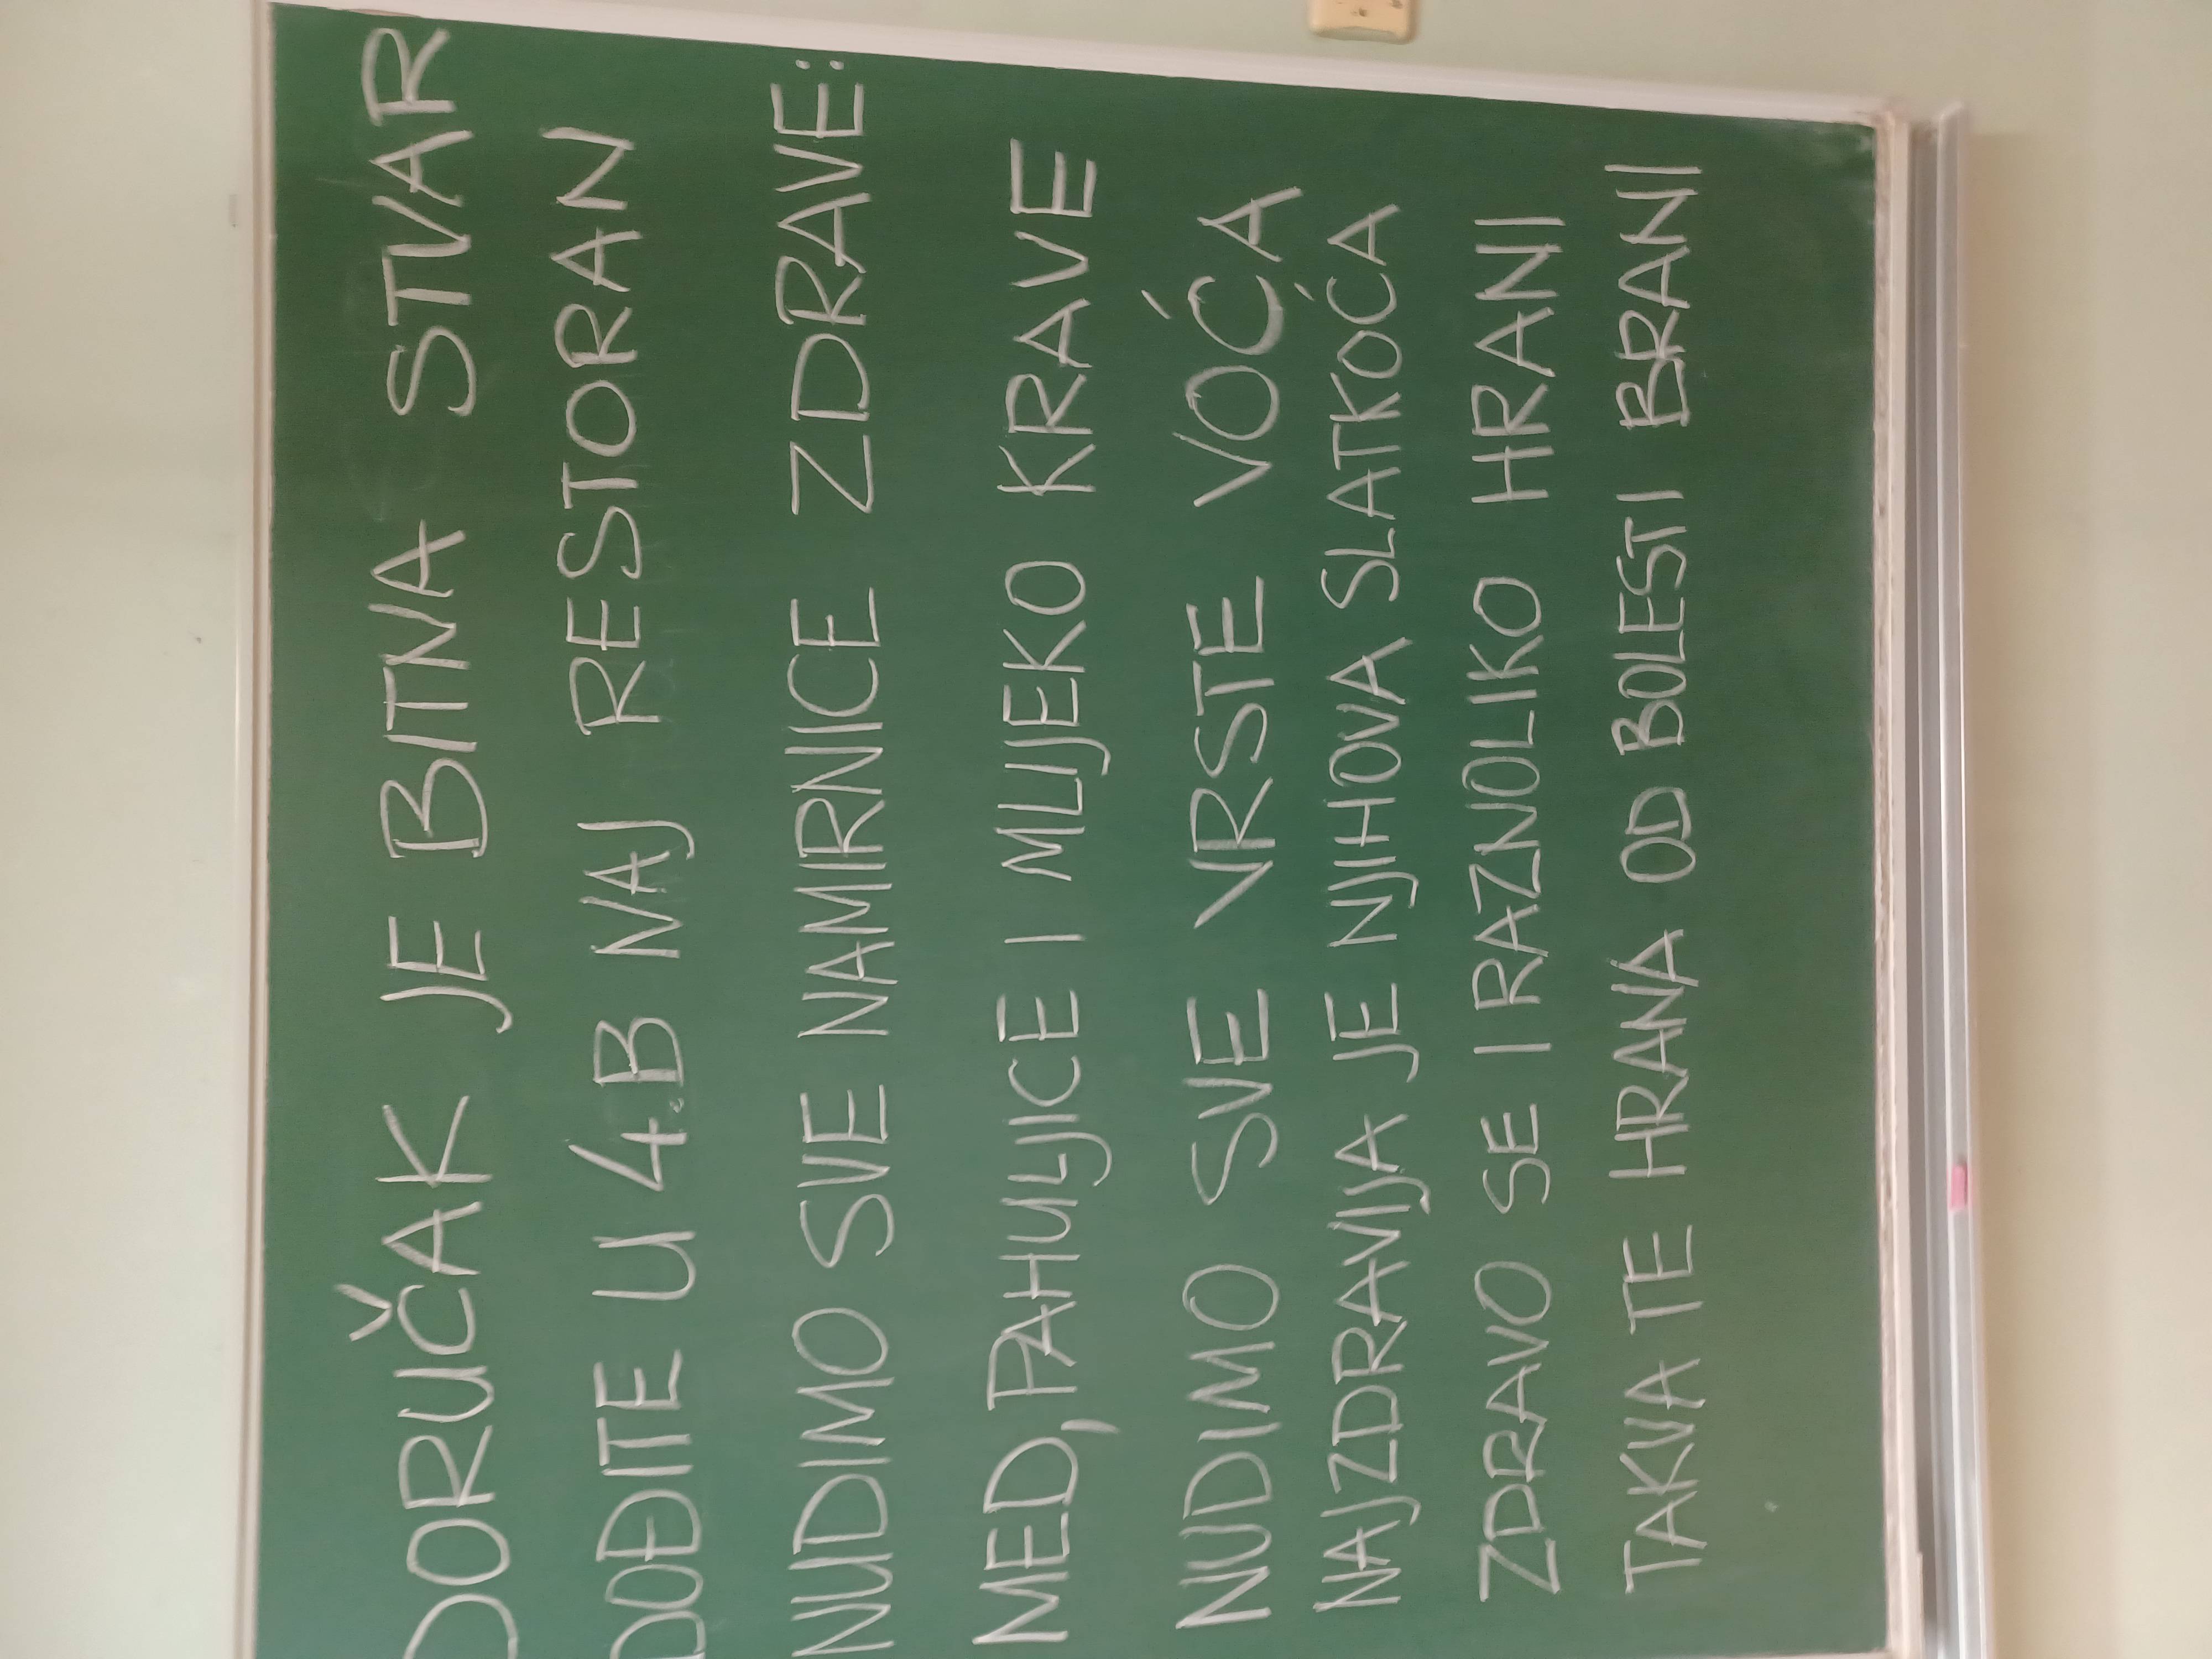 DORUČAK JE BITNA STVAR
DOĐITE U 4.B NAJ RESTORAN
NUDIMO SVE NAMIRNICE ZDRAVE:
MED, PAHULJICE I MLIJEKO KRAVE
NUDIMO SVE VRSTE VOĆA
NAJZDRAVIJA JE NJIHOVA SLATKOĆA
ZDRAVO SE I RAZNOLIKO HRANI
TAKVA TE HRANA OD BOLESTI BRANI